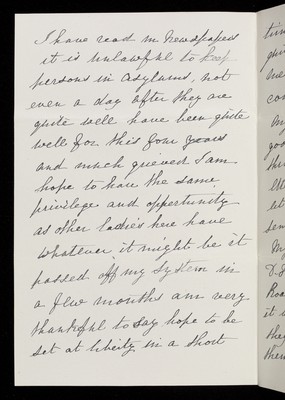 I have read in Newspapers
it is unlawful to keep
persons in asylums, not
even a day after they are
quite well have been quite
well for this four years
and much grieved I am
hope to have the same
privilege and oppertunity
as other ladies here have
Whatever it might be it
passed off my system in
a few months am very
thankful to say hope to be
set at liberty in a short